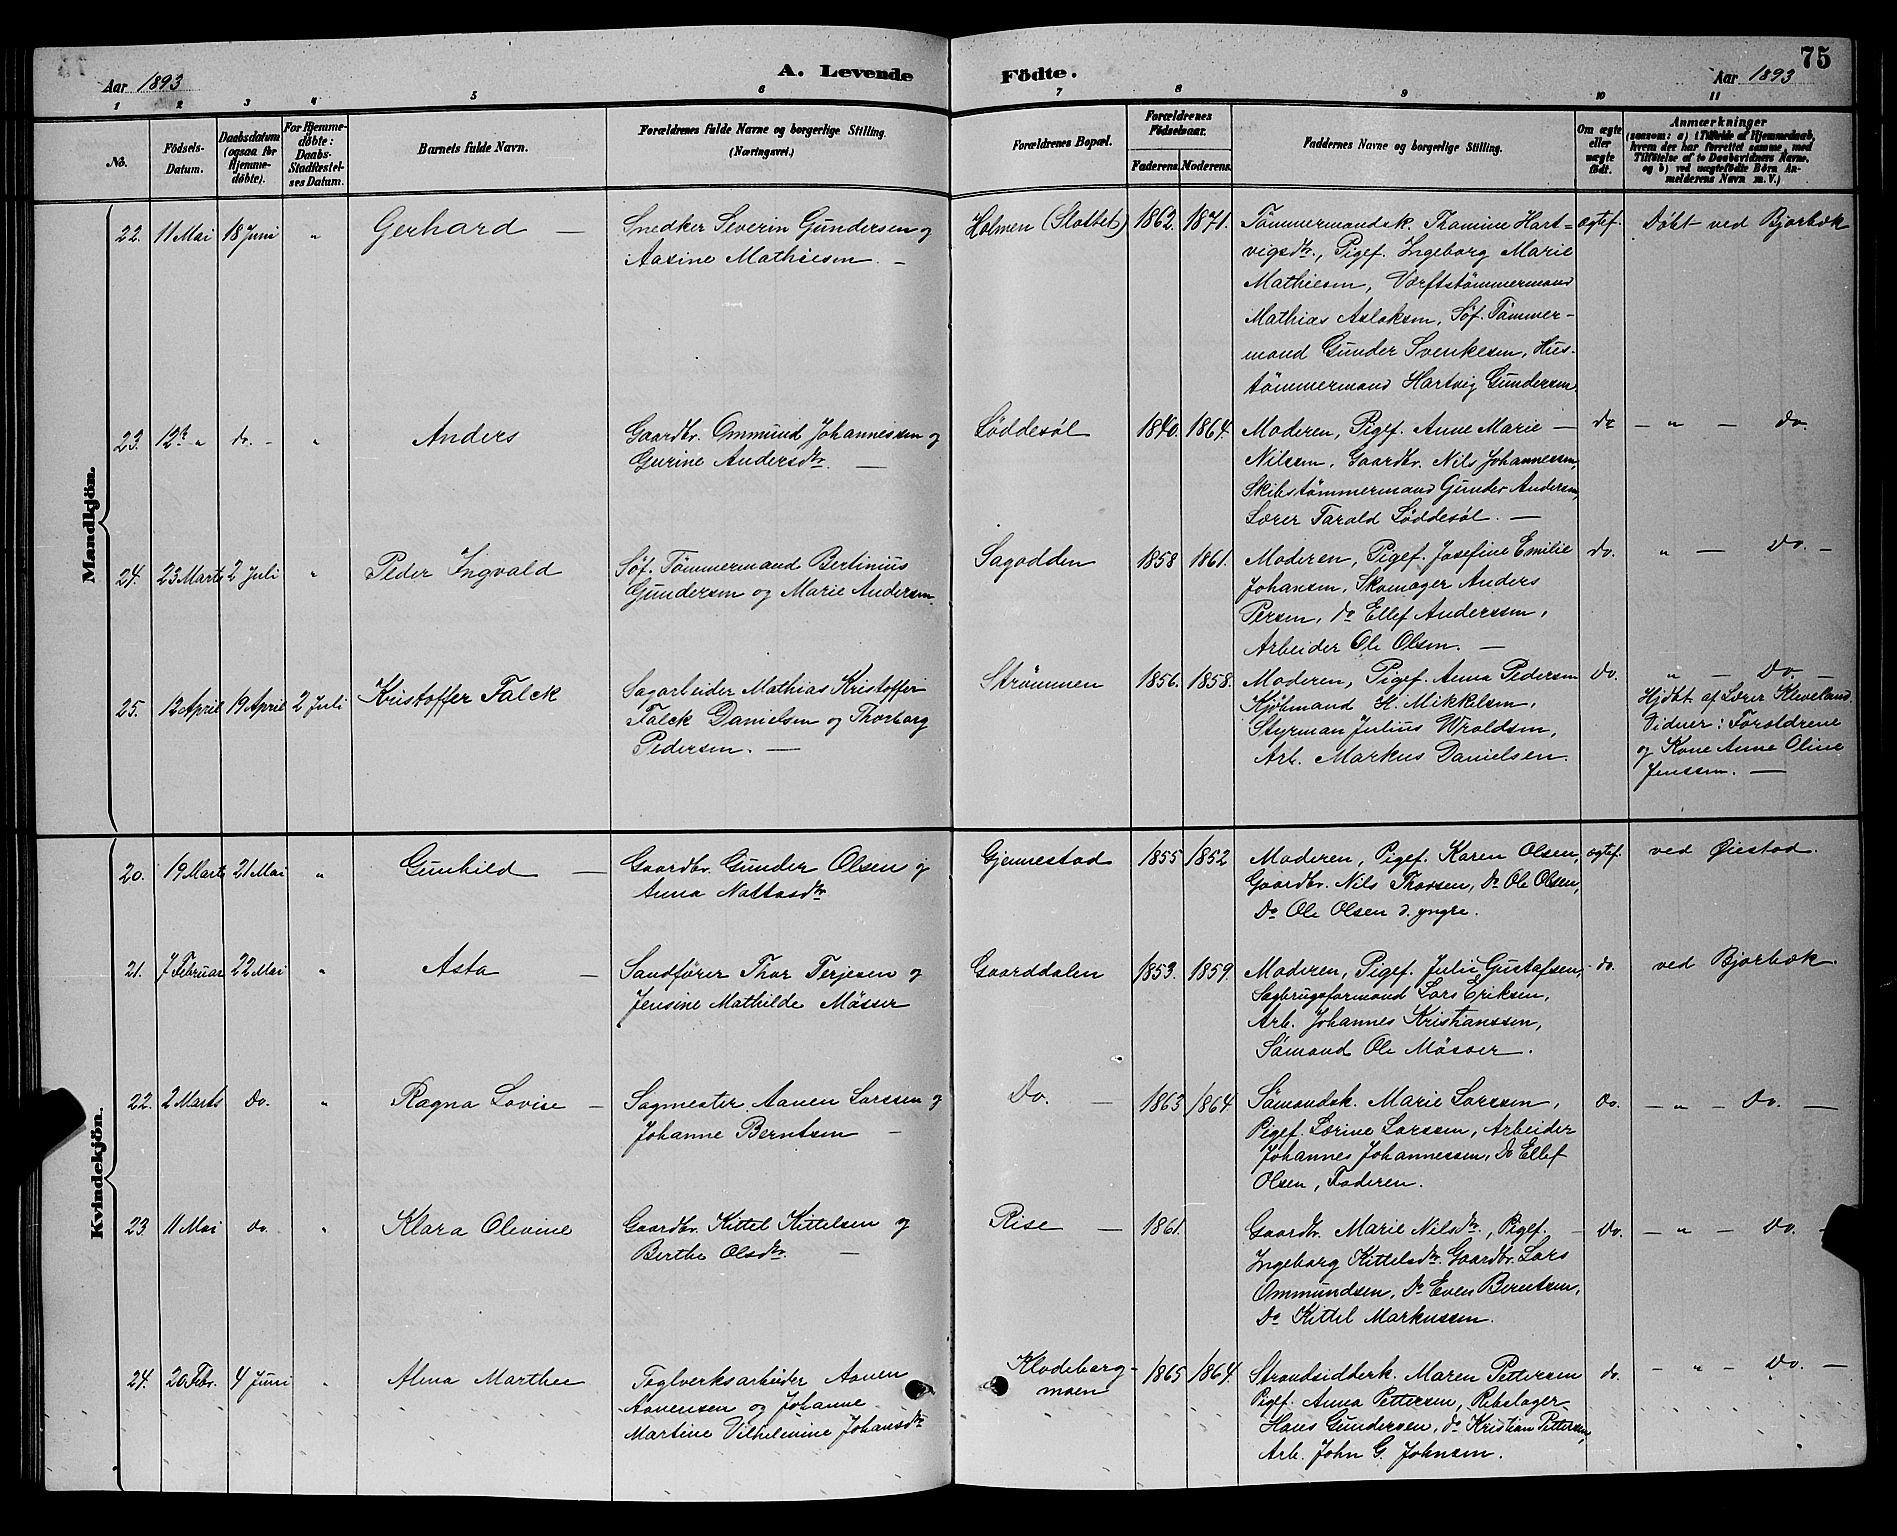 75
Aar 1893 A. Levende Födte. Aar 1893
1 2 3 4 5 6 7 8 9 10 11
No.
Födsels-
Datum.
Daabsdatum
(ogsaa for
Hjemme-
döbte).
For Hjemme-
döbte:
Daabs-
Stadfæstel-
ses Datum.
Barnets fulde Navn.
Forældrenes fulde Navne og borgerlige Stilling.
(Næringsvei.)
Forældrenes Bopæl.
Forældrenes
Födselsaar.
Faderens. Moderens.
Faddernes Navne og borgerlige Stilling.
Om ægte
eller
uægte
födt.
Anmærkninger
(saasom: a) i Tilfælde af Hjemmedaab,
hvem der har forrettet samme, med
Tilföielse af to Daabsvidners Navne,
og b) ved uægtefödte Börn An-
melderens Navn m. V.)
Mandkjön.
22. 11 Mai 18 Juni " Gerhard —
Snedker Severin Gundersen og
Aasine Mathiesen. —
Holmen (Slottet) 1862. 1871.
Tömmermandsk. Thamine Hart=
vigsdtr., Pigef. Ingeborg Marie
Mathiesen, Værftstömmermand
Mathias Aslaksen, Söf. Tömmer-
mand Gunder Svenkesen, Hus-
tömmermand Hartvig Gundersen
ægtef. Döbt ved Bjorbæk
23. 12te " do. - " Anders
Gaardbr. Ommund Johannessen og
Gurine Andersdtr. —
Løddesøl 1840. 1864.
Moderen, Pigef. Anne Marie —
Nilssen, Gaardbr. Nils Johannessen,
Skibstömmermand Gunder Andersen,
Lærer Tarald Løddesøl. —
do — " — do.
24. 23 Marts 2 Juli " Peder Ingvald
Söf. Tömmermand Bertinius
Gundersen og Marie Andersen.
Sagodden 1858 1861.
Moderen, Pigef. Josefine Emilie
Johansen, Skomager Anders
Persen, do Ellef Anderssen,
Arbeider Ole Olsen. —
do. " — Do. —
25. 12 April 19 April 2 Juli Kristoffer Falck
Sagarbeider Mathias Kristoffer
Falck Danielsen og Thorborg
Pedersen. —
Strømmen 1856. 1858.
Moderen, Pigef. Anna Pedersen
Kjöbmand H. Mikkelsen,
Styrman Julius Wroldsen,
Arb. Markus Danielsen.
do. " — Do. —
Hjdbt. af Lærer Kleveland.
Vidner: Forældrene
og Kone Anne Oline
Jenssen. —
Kvindekjön.
20. 19 Marts 21 Mai " Gunhild —
Gaardbr. Gunder Olsen og
Anna Nattasdtr
Gjennestad 1855 1852
Moderen, Pigef. Karen Olsen,
Gaardbr. Nils Thorsen, Do Ole Olsen,
Do Ole Olsen d. yngre.
ægtef. ved Øiestad.
21. 7 Februar 22 Mai " Asta —
Sandfører Thor Terjesen og
Jensine Mathilde Møsser
Gaarddalen 1853. 1859.
Moderen, Pigef. Julie Gustafsen,
Sagbrugsformand Lars Eriksen,
Arb. Johannes Kristianssen,
Sömand Ole Møsser.
do. ved Bjorbæk.
22. 2 Marts Do. " Ragna Lovise —
Sagmester Aanen Larssen og
Johanne Berntsen —
Do. — 1863 1864
Sömandsk. Marie Larssen,
Pigef. Lærine Larssen, Arbeider
Johannes Johannessen, Do Ellef
Olsen, Faderen.
do. — " — Do. —
23. 11 Mai do. " Klara Olevine
Gaardbr. Kittel Kittelsen og
Berthe Olsdtr. —
Rise — 1861.
Gaardbr. Marie Nilsdtr., Pigef. —
Ingeborg Kittelsdtr. Gaardbr. Lars
Ommundsen, Do Even Berntsen,
Do Kittel Markussen.
Do. — " — Do. —
24. 20 Febr. 4 Juni " Alma Marthee
Teglverksarbeider Aanen
Aanensen og Johanne
Martine Vilhelmine Johansdtr
Klodeborg-
moen 1865 1864.
Strandsidderk. Maren Pettersen
Pigef. Anna Pettersen, Rebslager
Hans Gundersen, do Kristian Pettersen,
Arb. John G. Johnsen.
do. — " — Do. —